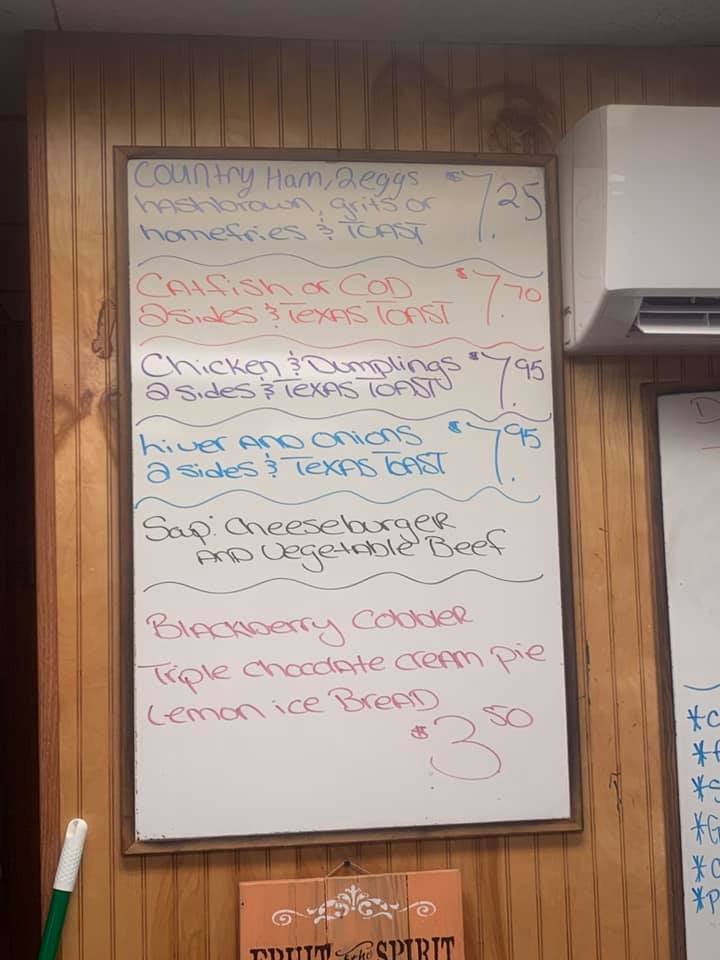 Country Ham, 2 eggs $7.25
hashbrown, grits or
homefries & TOAST
Catfish or COD $7.70
2 sides & Texas TOAST
Chicken & Dumplings $7.95
2 sides & Texas TOAST
Liver AND Onions $7.95
2 sides & Texas TOAST
Soup: Cheeseburger
AND Vegetable Beef
Blackberry Cobbler
Triple chocolate cream pie
Lemon ice Bread
$3.50
FRUIT of the SPIRIT